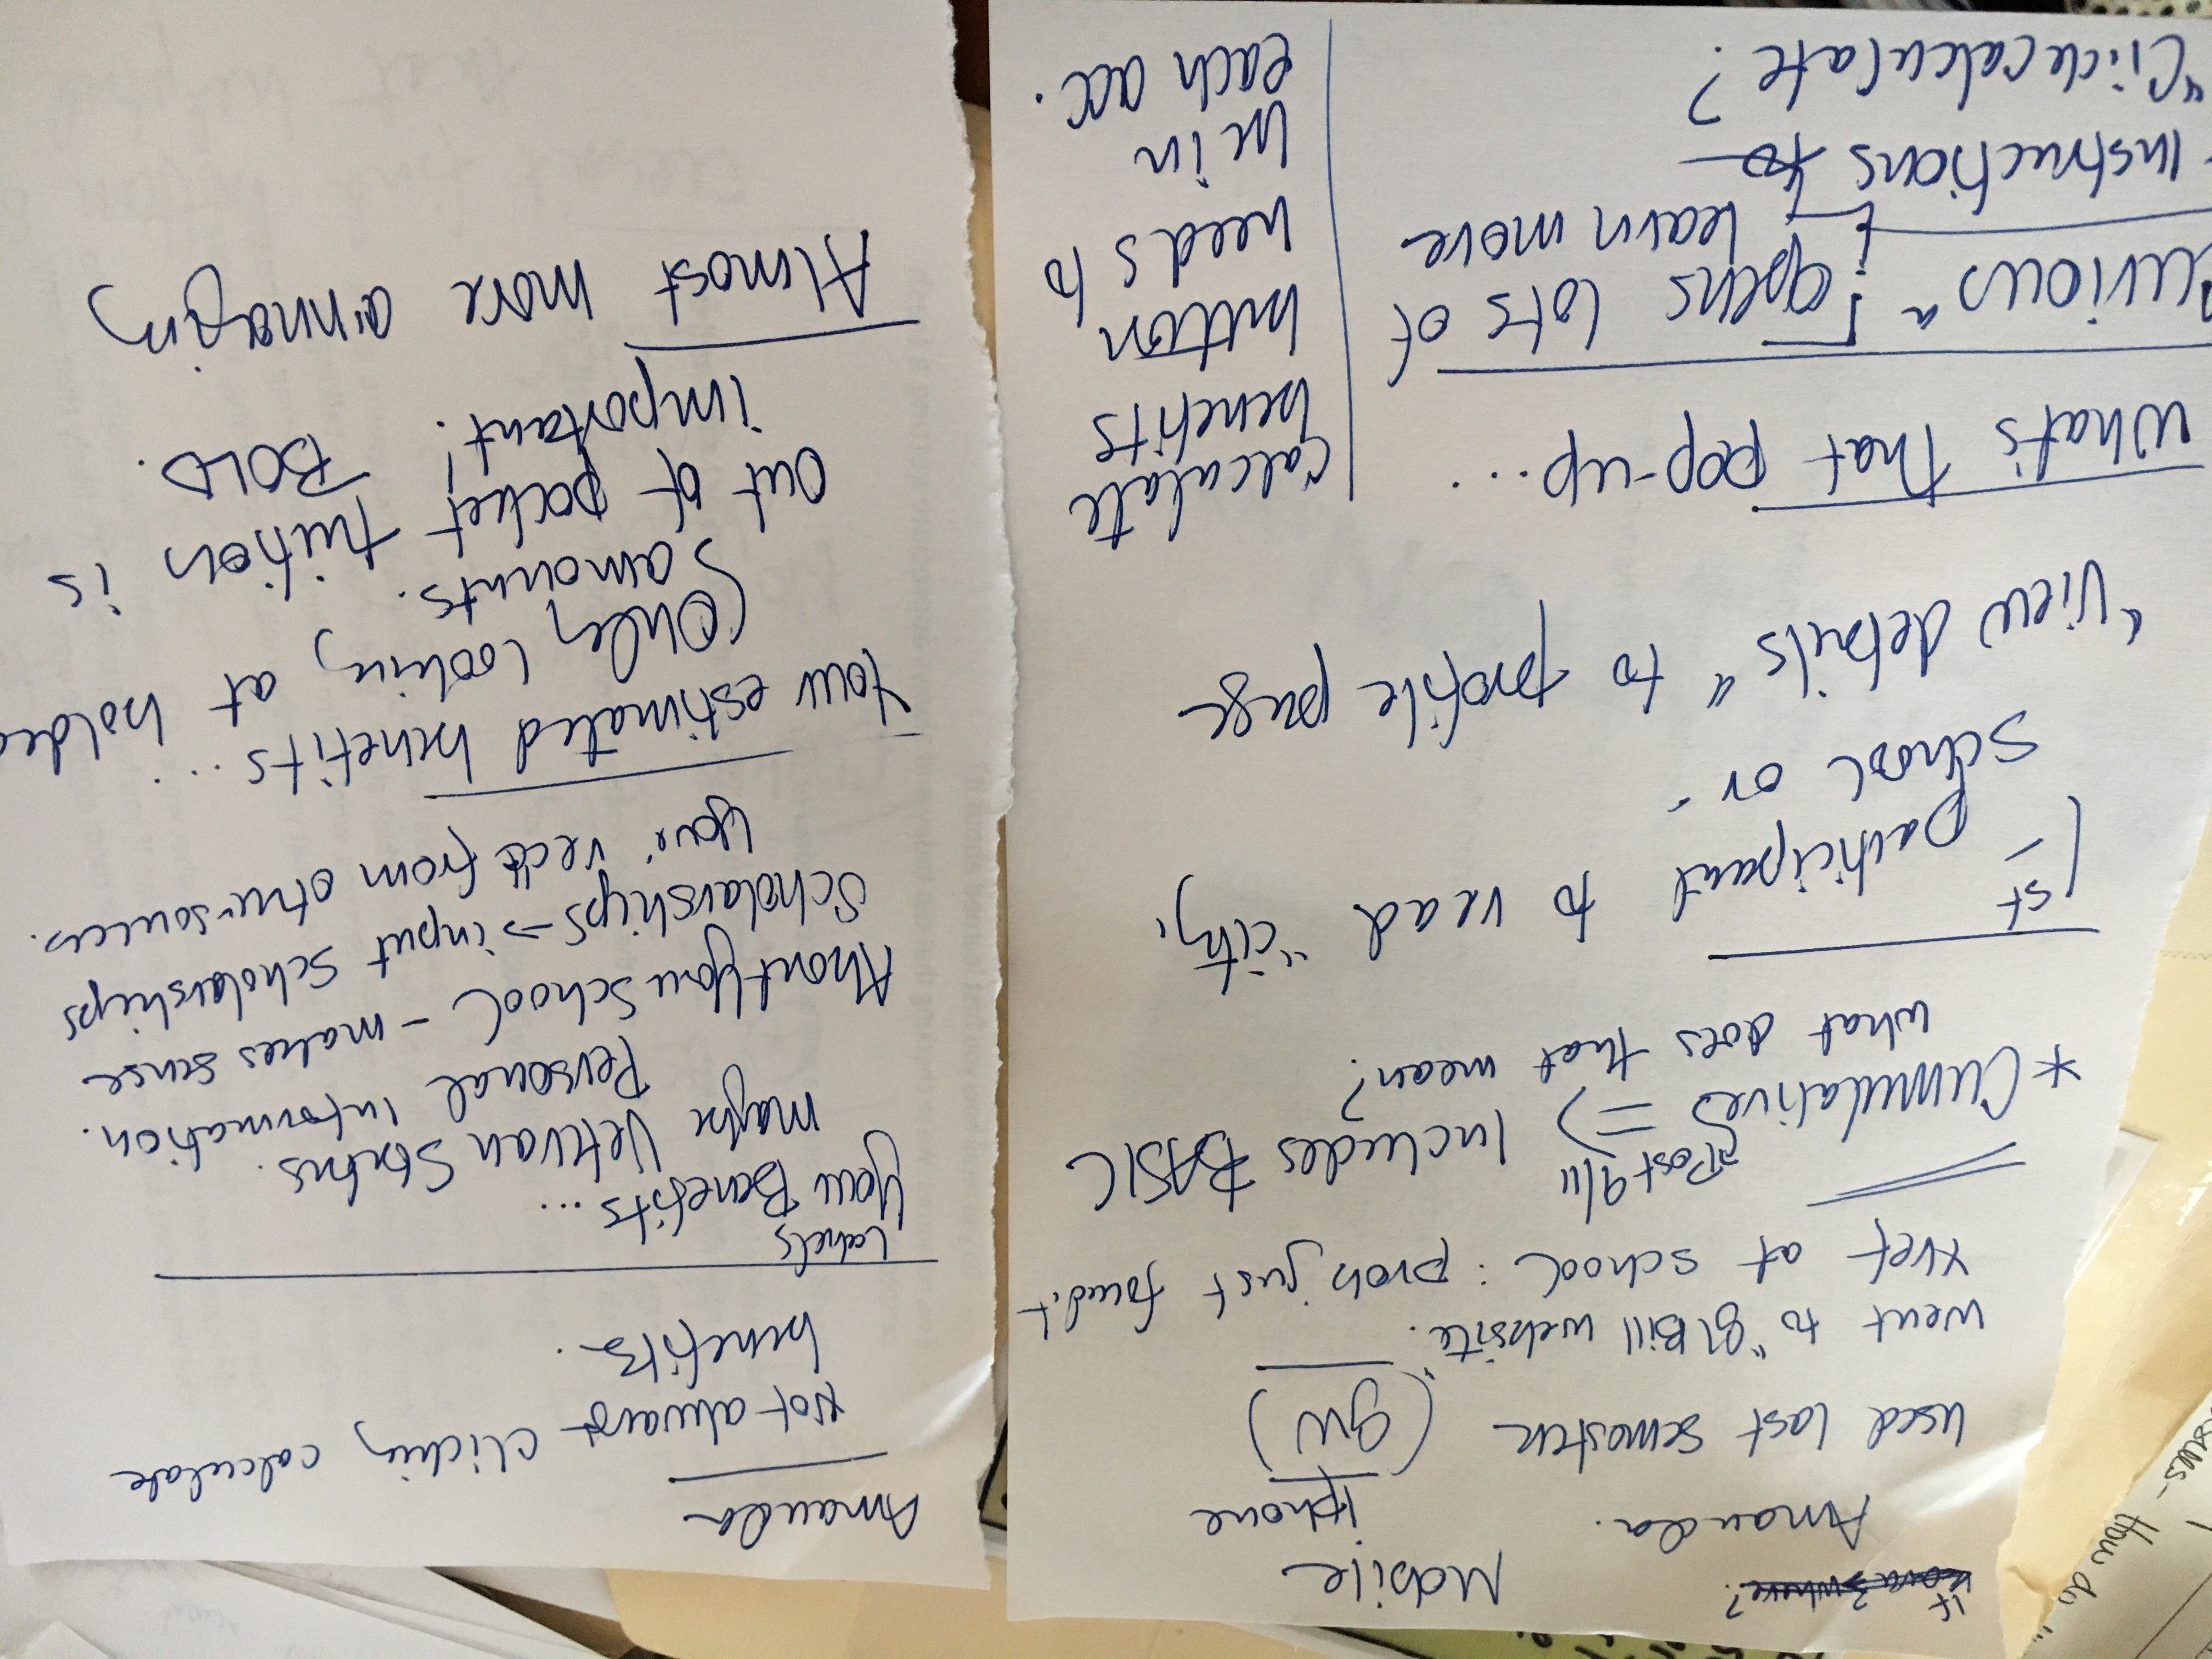 If
where?
Mobile
Amanda.
iphone
Used last semester (GW)
went to "GI Bill website".
xref at school : prob just found it
Post 9/11
* Cumulative => Includes BASIC
what does that mean?
1st participant to read "city,
school or -
"View details" to profile page
What's that pop-up...
Curious" opens lots of
learn more
- Instructions to
"Click calculate?
Calculate
benefits
button
needs to
be in
each acc.
Amanda
Not always clicking calculate
benefits.
Labels
Your Benefits...
maybe Veteran Status.
Personal information.
About Your School - makes sense
Scholarships → input scholarships
from other sources.
Your estimated benefits...
(Only looking at bolded
amounts.
Out of pocket tuition is
important! BOLD.
Almost more annoying
How do